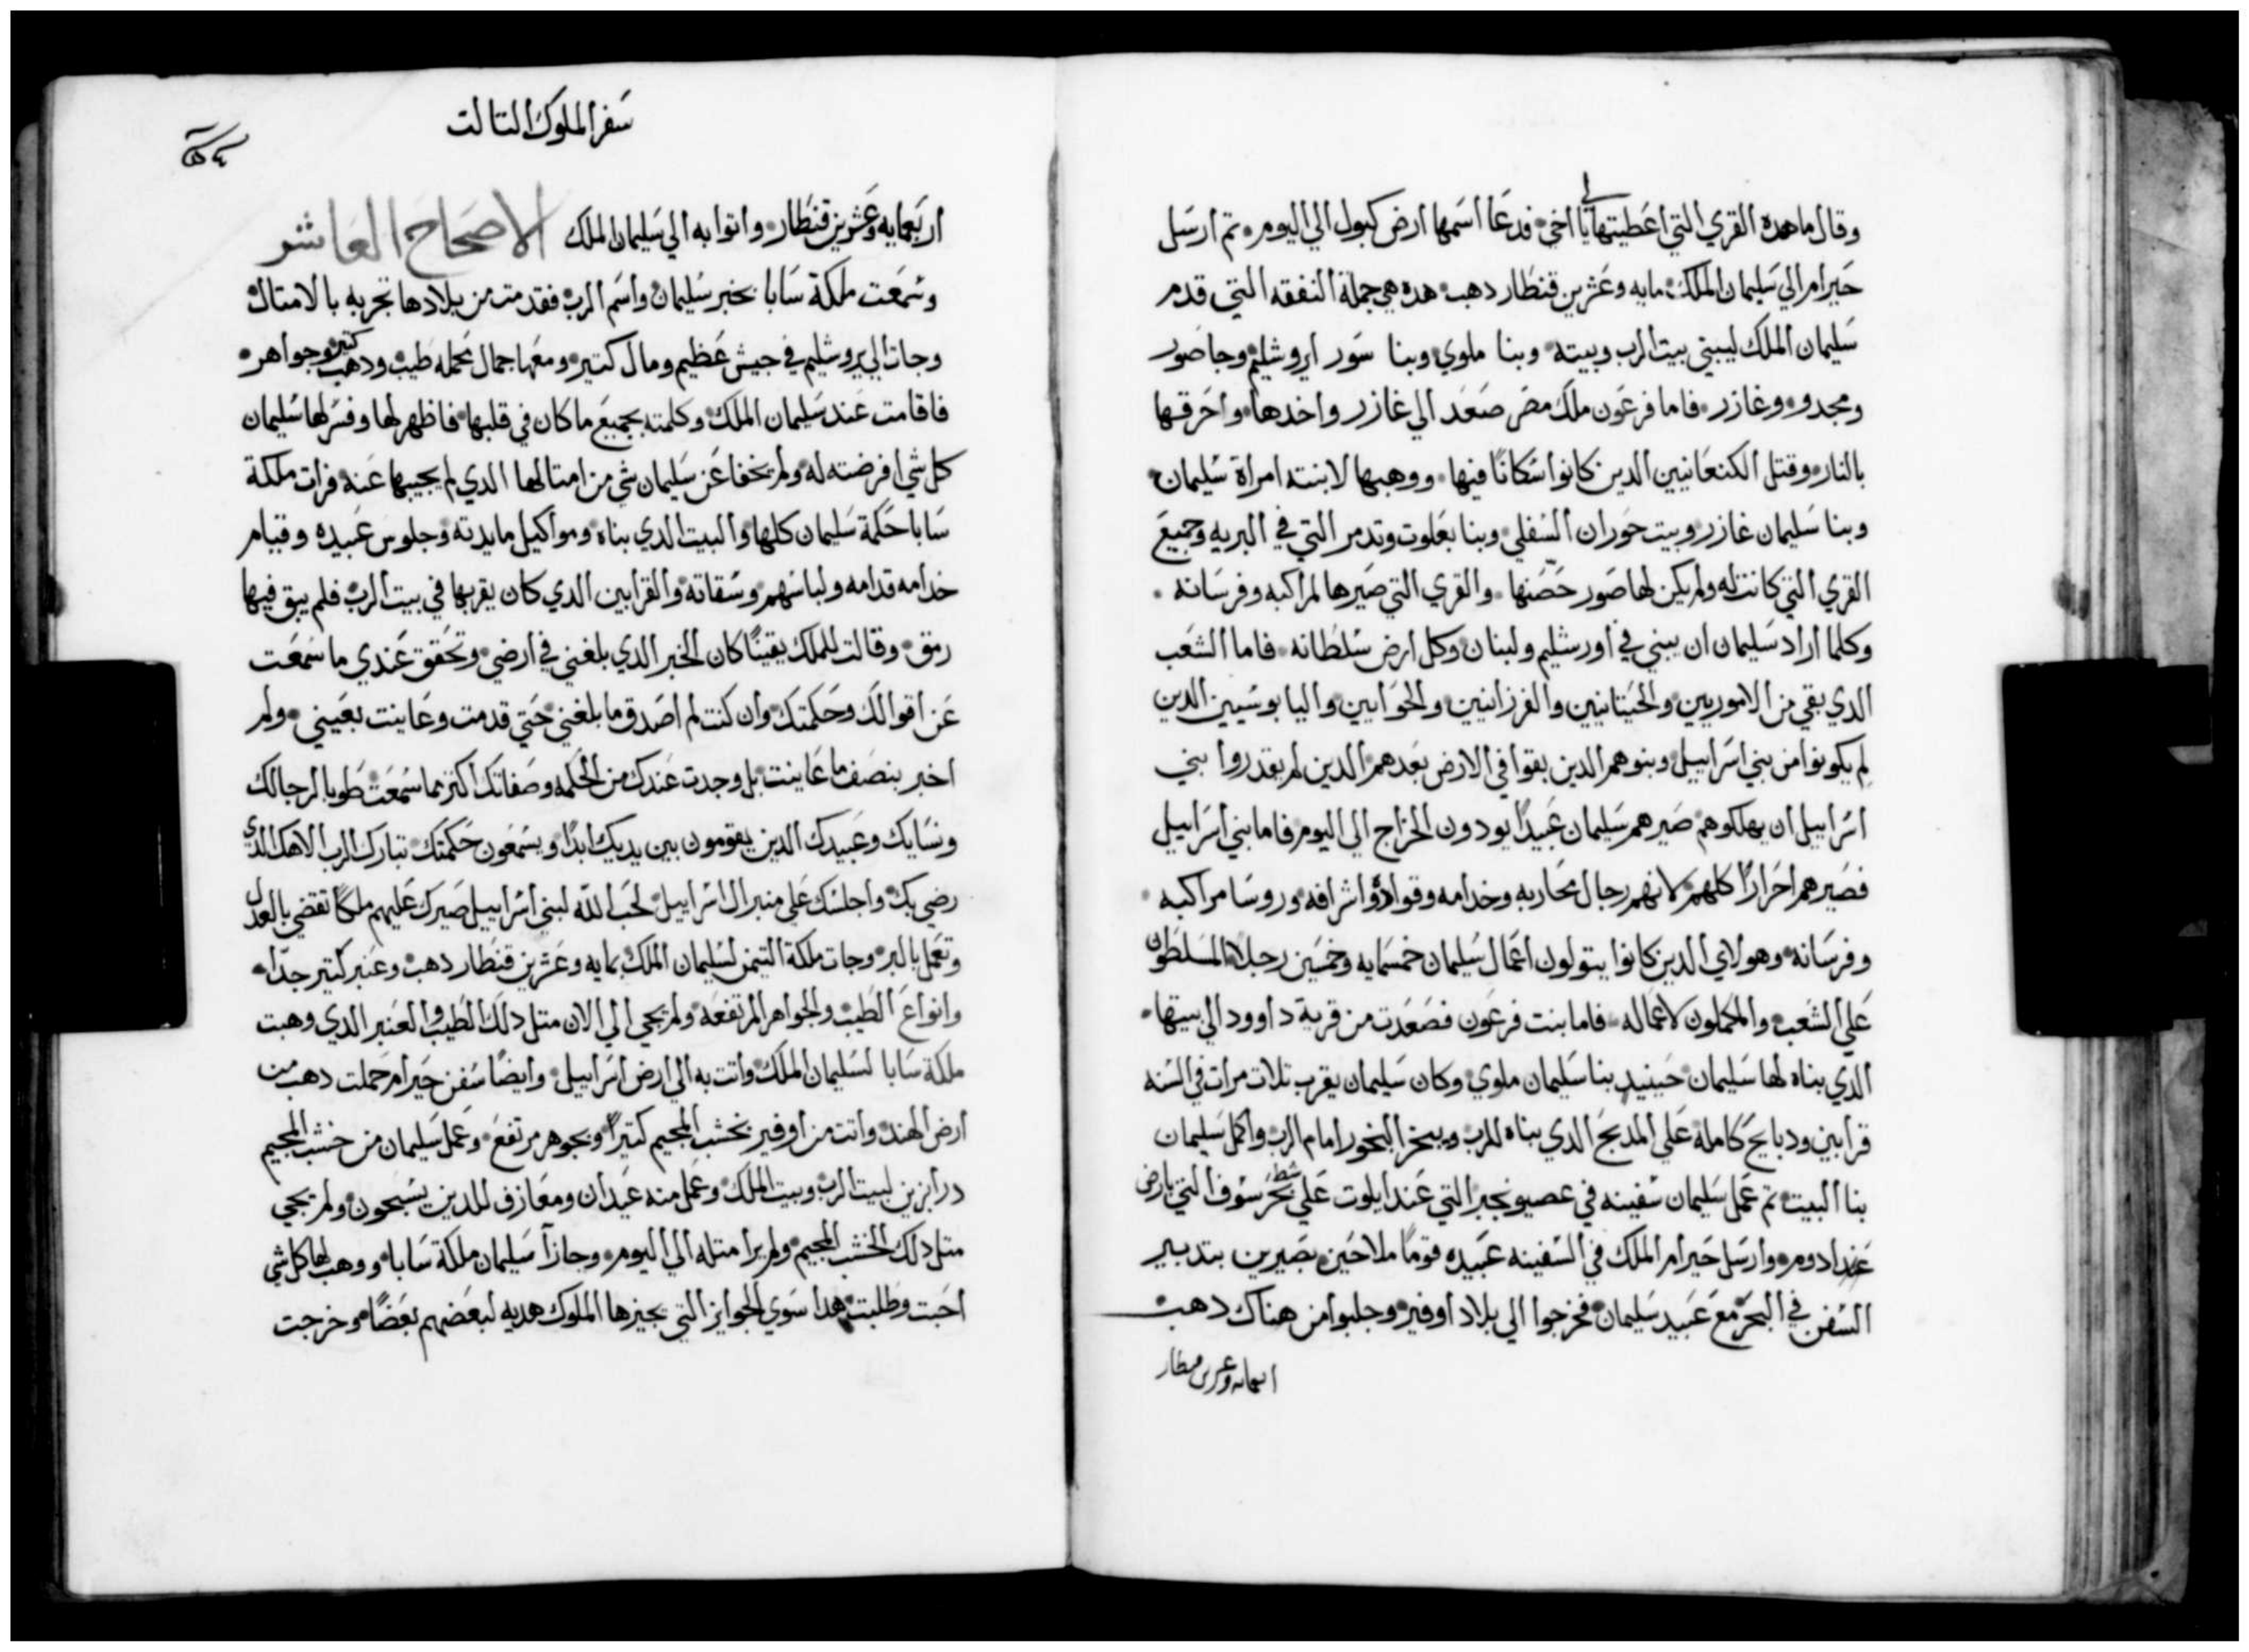 وقال ما هده القري التي اعطيتهالي يا اخي فدعا اسمها ارض كبول الي اليوم تم ارسل
حيرام الي سليمان الملك مايه وعشرين قنطار دهب هده هي جملة النفقه التي قدم
سليمان الملك ليبني بيت الرب وبيته وبنا ملوي وبنا سور ايروشليم وجاصور
ومجدو وغازر فاما فرعون ملك مصر صعد الي غازر واخدها واحرقها
بالنار وقتل الكنعانيين الدين كانوا سكانًا فيها ووهبها لابنته امراة سليمان
وبنا سليمان غازر وبيت حوران السفلي وبنا بعلوت وتدمر التي في البريه وجميع
القري التي كانت له ولم يكن لها صور حصنها والقري التي صيرها لمراكبه وفرسانه
وكلما اراد سليمان ان يبني في اورشليم ولبنان وكل ارض سلطانه فاما الشعب
الدي بقي من الاموريين والحيتانيين والفرزانيين والحوايين واليابوسيين الدين
لم يكونوا من بني اسراييل وبنوهم الدين بقوا في الارض بعدهم الدين لم يقدروا بني
اسراييل ان يهلكوهم صيرهم سليمان عبيدًا يودون الخراج الي اليوم فاما بني اسراييل
فصيرهم احرارًا كلهم لانهم رجال محاربه وخدامه وقواده واشرافه وروسا مراكبه
وفرسانه وهولاي الدين كانوا يتولون اعمال سليمان خمسمايه وخمسين رجلا المسلطون
علي الشعب والمكملون لاعماله فاما بنت فرعون فصعدت من قرية داوود الي بيتها
الدي بناه لها سليمان حينيد بنا سليمان ملوي وكان سليمان يقرب تلات مرات في السنه
قرابين ودبايح كامله علي المدبح الدي بناه للرب ويبخر البخور امام الرب واكمل سليمان
بنا البيت تم عمل سليمان سفينه في عصيونجبر التي عند ايلوت علي شط بحر سوف التي بارض
ادوم وارسل حيرام الملك في السفينه عبيده قومًا ملاحين بصيرين بتدبير
السفن في البحر مع عبيد سليمان فخرجوا الي بلاد اوفير وجلبوا من هناك دهب
اربعمايه وعشرين قنطار
سفر الملوك التالت
اربعمايه وعشرين قنطار واتوا به الي سليمان الملك الاصحاح العاشر
وسمعت ملكة سابا بخبر سليمان واسم الرب فقدمت من بلادها تجربه بالامتال
وجات الي يروشليم في جيش عظيم ومال كتير ومعها جمال محمله طيب ودهب كتير وجواهر
فاقامت عند سليمان الملك وكلمته بجميع ما كان في قلبها فاظهر لها وفسر لها سليمان
كل شي افرضته له ولم يخفا عن سليمان شي من امتالها الدي لم يجيبها عنه فرات ملكة
سابا حكمة سليمان كلها والبيت الدي بناه ومواكيل مايدته وجلوس عبيده وقيام
خدامه قدامه ولباسهم وسقاته والقرابين الدي كان يقربها في بيت الرب فلم يبق فيها
رمق وقالت للملك يقينًا كان الخبر الدي بلغني في ارضي وتحقق عندي ما سمعت
عن اقوالك وحكمتك وان كنت لم اصدق ما بلغني حتي قدمت وعاينت بعيني ولم
اخبر بنصف ما عاينت بل وجدت عندك من الحكمه وصفاتك اكتر مما سمعت طوبا لرجالك
ونسايك وعبيدك الدين يقومون بين يديك ابدًا ويسمعون حكمتك تبارك الرب الاهك الدي
رضي بك واجلسك علي منبر ال اسراييل لحب الله لبني اسراييل صيرك عليهم ملكًا تقضي بالعدل
وتعمل بالبر وجات ملكة التيمن لسليمان الملك بمايه وعشرين قنطار دهب وعنبر كتير جدًا
وانواع الطيب والجواهر المرتفعه ولم يجي الي الان متل دلك الطيب والعنبر الدي وهبت
ملكة سابا لسليمان الملك واتت به الي ارض اسراييل وايضًا سفن حيرام حملت دهب من
ارض الهند واتت من اوفير بخشب المجيم كتيرًا وبجوهر مرتفع وعمل سليمان من خشب المجيم
درابزين لبيت الرب وبيت الملك وعمل منه عيدان ومعازف للدين يسبحون ولم يجي
متل دلك الخشب المجيم ولم يرا متله الي اليوم وجازا سليمان ملكة سابا ووهب لها كل شي
احبت وطلبت هدا سوي الجوايز التي يجيزها الملوك هديه لبعضهم بعضًا وخرجت